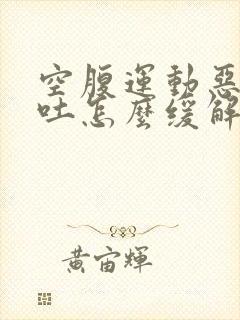 空腹運動惡
吐怎麼緩解
黃宙輝